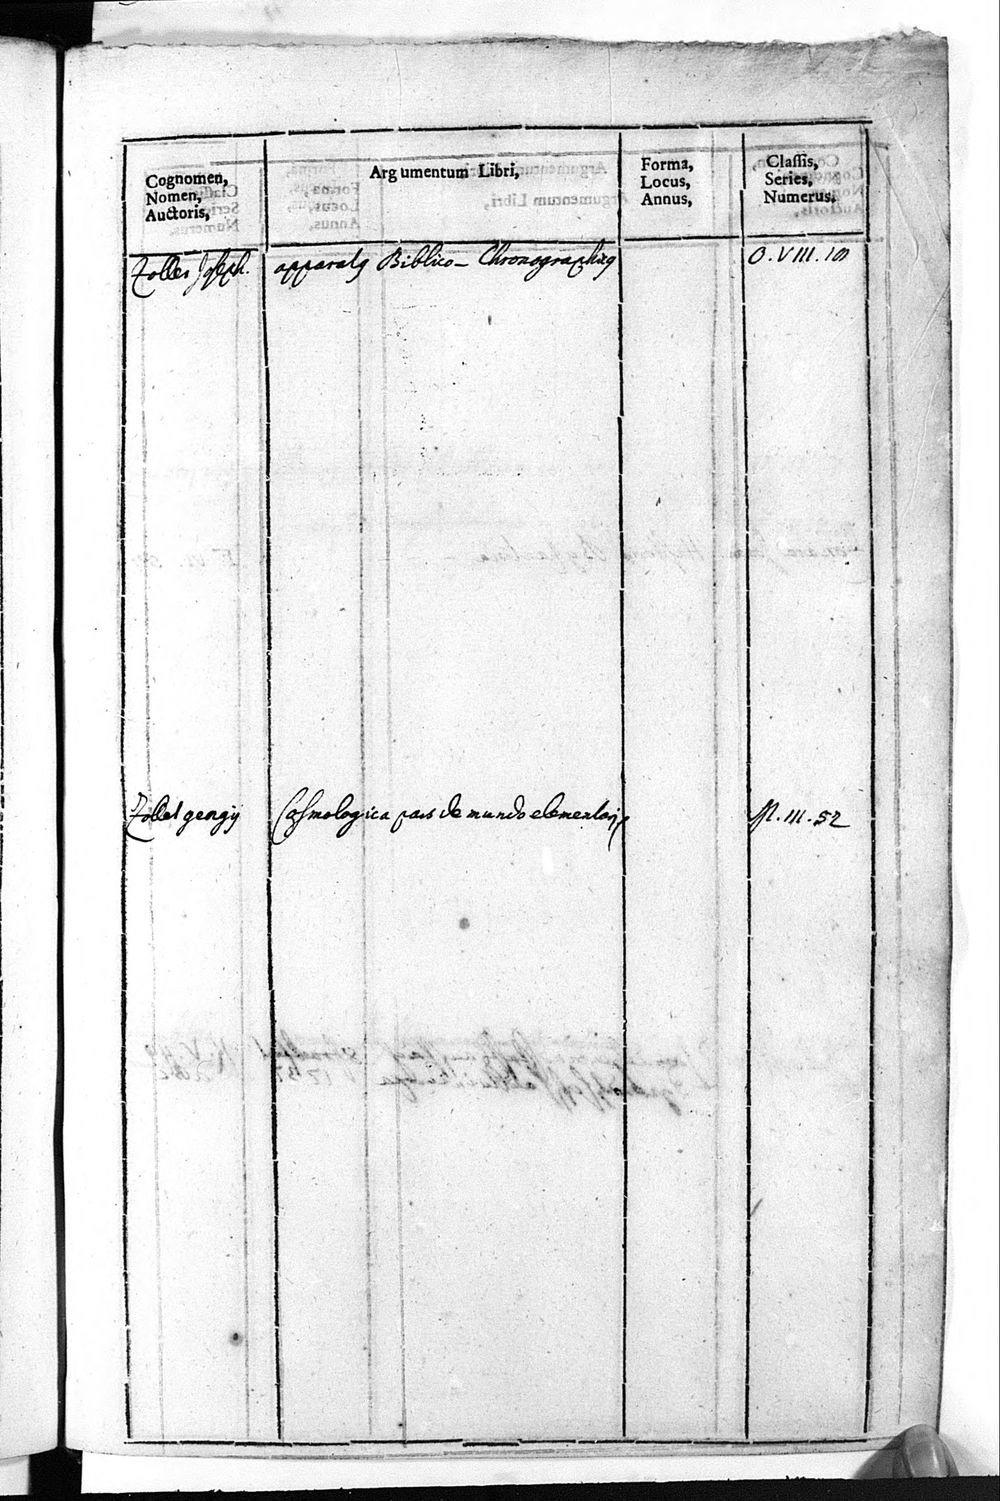 Cognomen,
Nomen,
Auctoris,
Argumentum Libri,
Forma,
Locus,
Annus,
Classis,
Series,
Numerus,
Zoller Joseph.
apparatq Biblico - Chronographicq
O. VIII. 10
Zollet
Cosmologica pars de mundo elementari
M. III. 52